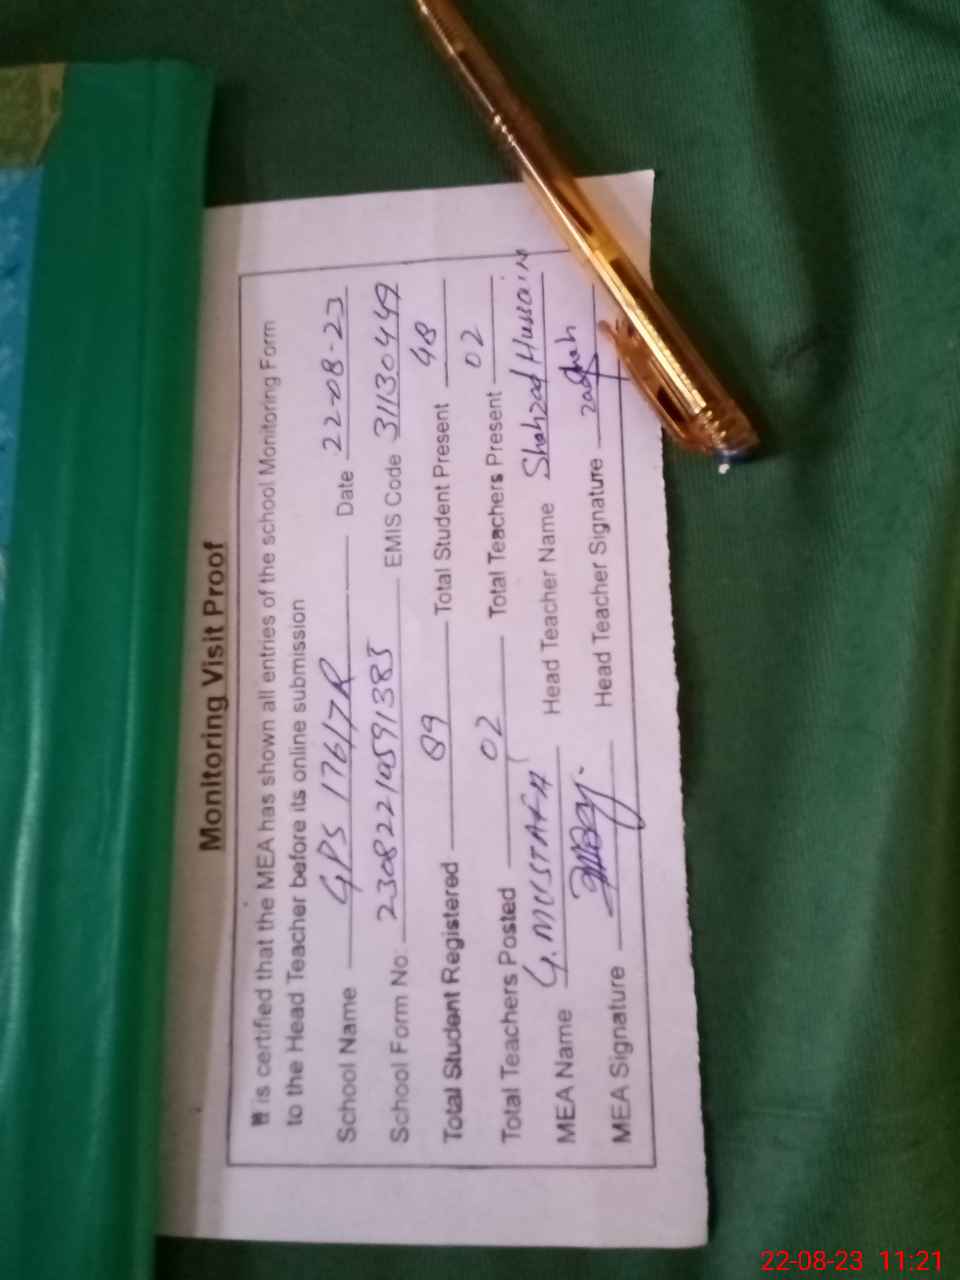 Monitoring Visit Proof
It is certified that the MEA has shown all entries of the school Monitoring Form
to the Head Teacher before its online submission
School Name GPS 176/7R Date 22-08-23
School Form No: 23082210591385 EMIS Code 31130449
Total Student Registered 89 Total Student Present 48
Total Teachers Posted 02 Total Teachers Present 02
MEA Name G. MUSTAFA Head Teacher Name Shahzad Hussain
MEA Signature Head Teacher Signature
22-08-23 11:21